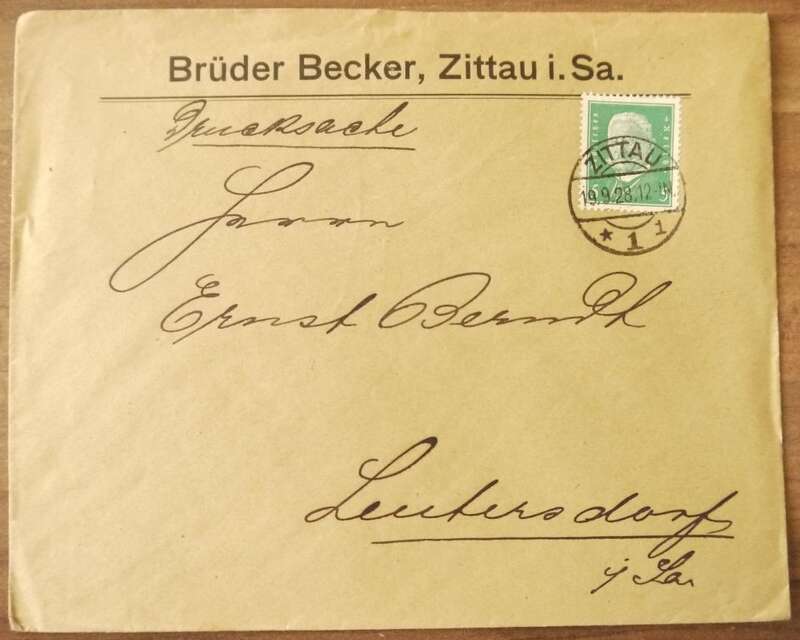 Brüder Becker, Zittau i. Sa.
Drucksache
ZITTAU
19.9.28.12-
* 1 1
Herrn
Ernst Berndt
Leutersdorf
i/Sa.